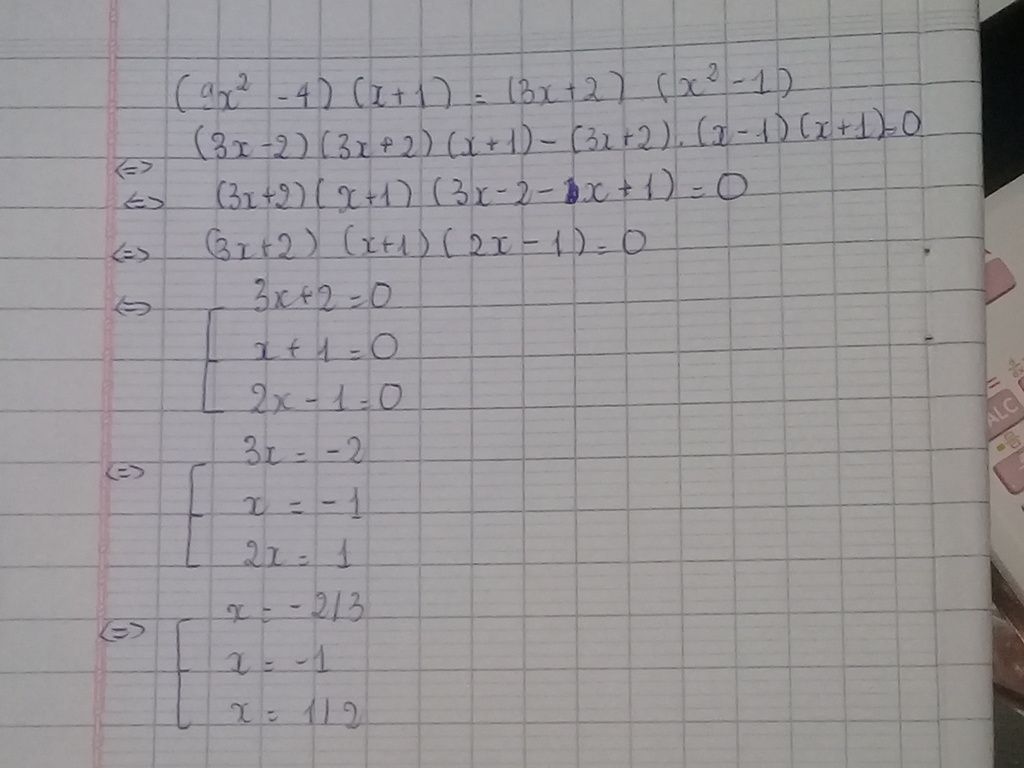 (9x² - 4) (x+1) = (3x+2) (x² - 1)
<=> (3x-2)(3x+2)(x+1) - (3x+2).(x-1)(x+1)=0
<=> (3x+2)(x+1)(3x-2-x+1)=0
<=> (3x+2)(x+1)(2x-1)=0
<=> [ 3x+2=0
x+1=0
2x-1=0
<=> [ 3x = -2
x = -1
2x = 1
<=> [ x = -2/3
x = -1
x = 1/2
ALC